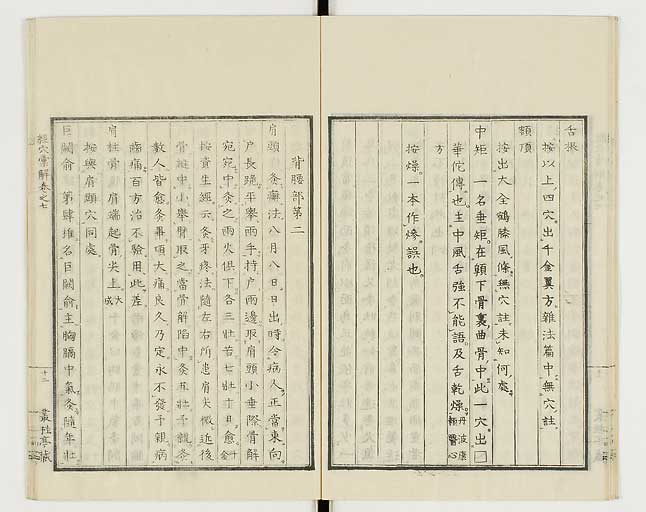 舌根
按以上四穴出千金翼方雜法篇中無穴註
額頂
按出大全鶴膝風條無穴註未知何處
中矩 一名垂矩在頤下骨裏曲骨中此一穴出□
華佗傳也主中風舌強不能語及舌乾燥丹波康頼醫心
方
按燥一本作慘誤也
背腰部第二
肩頭 灸癬法八月八日日出時令病人正當東向
戶長跪平舉兩手持戶兩邊取肩頭小垂際骨解
宛宛中灸之兩火俱下各三壯若七壯十日愈千金
按資生經云灸牙疼法隨左右所患肩尖微近後
骨縫中小舉臂取之當骨解陷中灸五壯予親灸
數人皆愈灸畢項大痛良久乃定永不發予親病
齒痛百方治不驗用此差
肩柱骨 肩端起骨尖上大成
按與肩頭穴同處
巨闕俞 第肆椎名巨闕俞主胸膈中氣灸隨年壯
經穴彙解卷之七
十二
叢桂亭藏